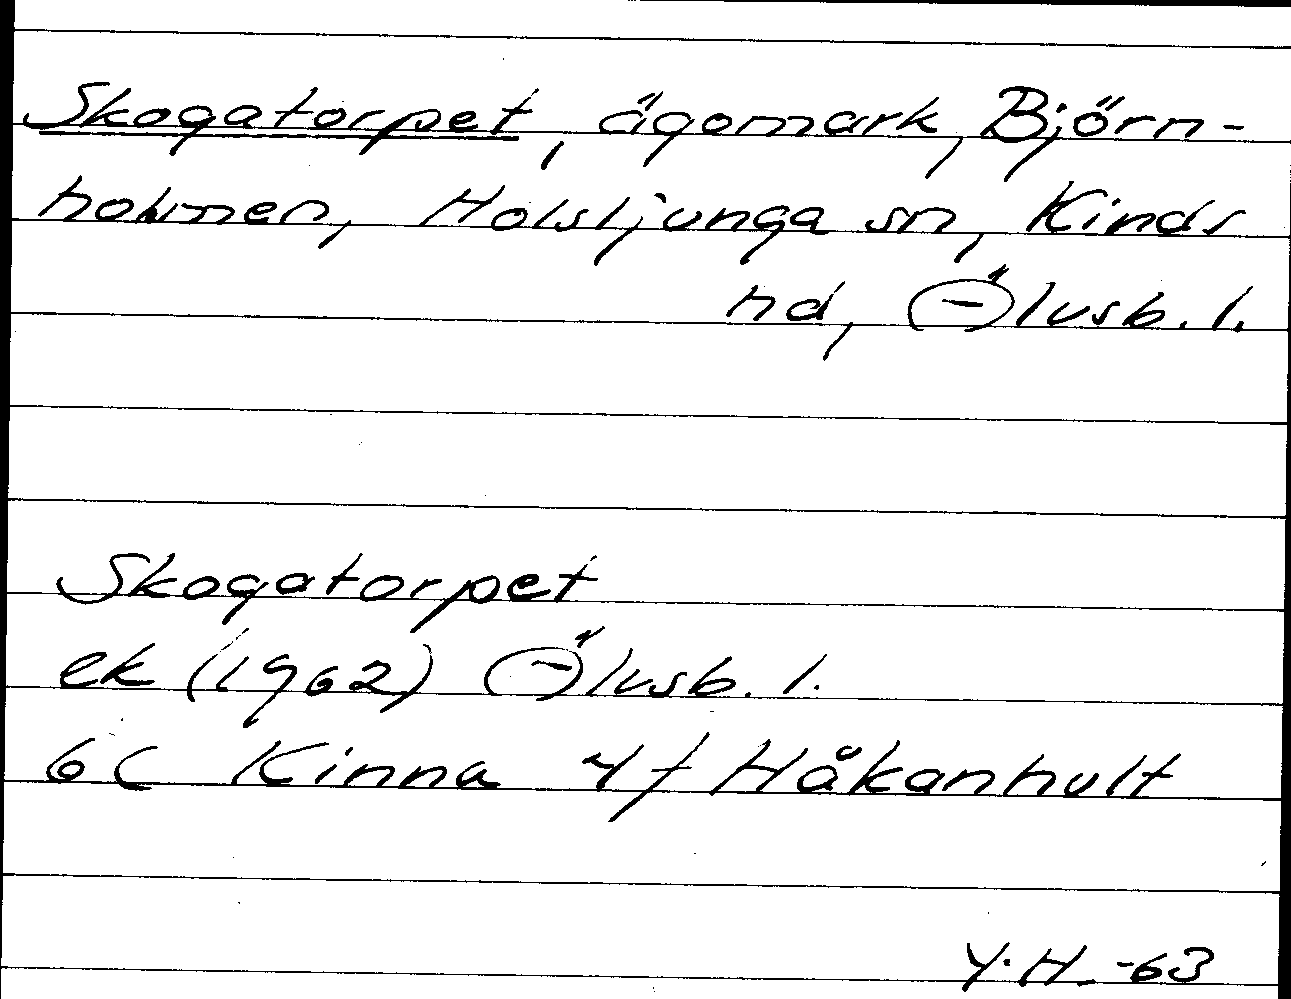 Skogatorpet, ägomark, Björn-
holmen, Holsljunga sn, Kinds
hd, Älvsb. l.
Skogatorpet
ek (1962) Älvsb. l.
6C Kinna 4f Håkanhult
Y.H. -63